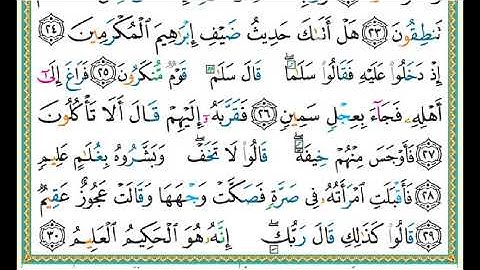 تَنطِقُونَ ﴿٢٣﴾ هَلْ أَتَىٰكَ حَدِيثُ ضَيْفِ إِبْرَٰهِيمَ ٱلْمُكْرَمِينَ ﴿٢٤﴾
إِذْ دَخَلُوا۟ عَلَيْهِ فَقَالُوا۟ سَلَٰمًا ۖ قَالَ سَلَٰمٌ قَوْمٌ مُّنكَرُونَ ﴿٢٥﴾ فَرَاغَ إِلَىٰٓ
أَهْلِهِۦ فَجَآءَ بِعِجْلٍ سَمِينٍ ﴿٢٦﴾ فَقَرَّبَهُۥٓ إِلَيْهِمْ قَالَ أَلَا تَأْكُلُونَ
﴿٢٧﴾ فَأَوْجَسَ مِنْهُمْ خِيفَةً ۖ قَالُوا۟ لَا تَخَفْ ۖ وَبَشَّرُوهُ بِغُلَٰمٍ عَلِيمٍ
﴿٢٨﴾ فَأَقْبَلَتِ ٱمْرَأَتُهُۥ فِى صَرَّةٍ فَصَكَّتْ وَجْهَهَا وَقَالَتْ عَجُوزٌ عَقِيمٌ
﴿٢٩﴾ قَالُوا۟ كَذَٰلِكِ قَالَ رَبُّكِ ۖ إِنَّهُۥ هُوَ ٱلْحَكِيمُ ٱلْعَلِيمُ ﴿٣٠﴾